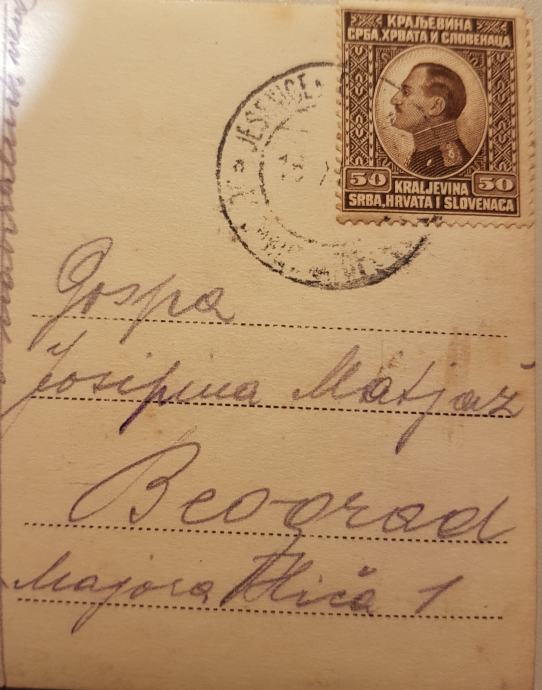 КРАЉЕВИНА
СРБА, ХРВАТА И СЛОВЕНАЦА
50 50
KRALJEVINA
SRBA, HRVATA I SLOVENACA
JESENICE
Gospa
Josipina Matjaž
Beograd
Majora Ilića 1